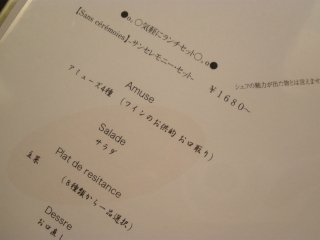 ●o.○気軽にランチセット○.o●
【Sans cérémonies】-サンセレモニー・セット-
￥1680~
シェフの魅力が出た物とは言えませ
Amuse
アミューズ4種 (ワインのお供的 お口取り)
Salade
サラダ
Plat de resitance
主菜 (8種類から一品選択)
Dessre
お口直し